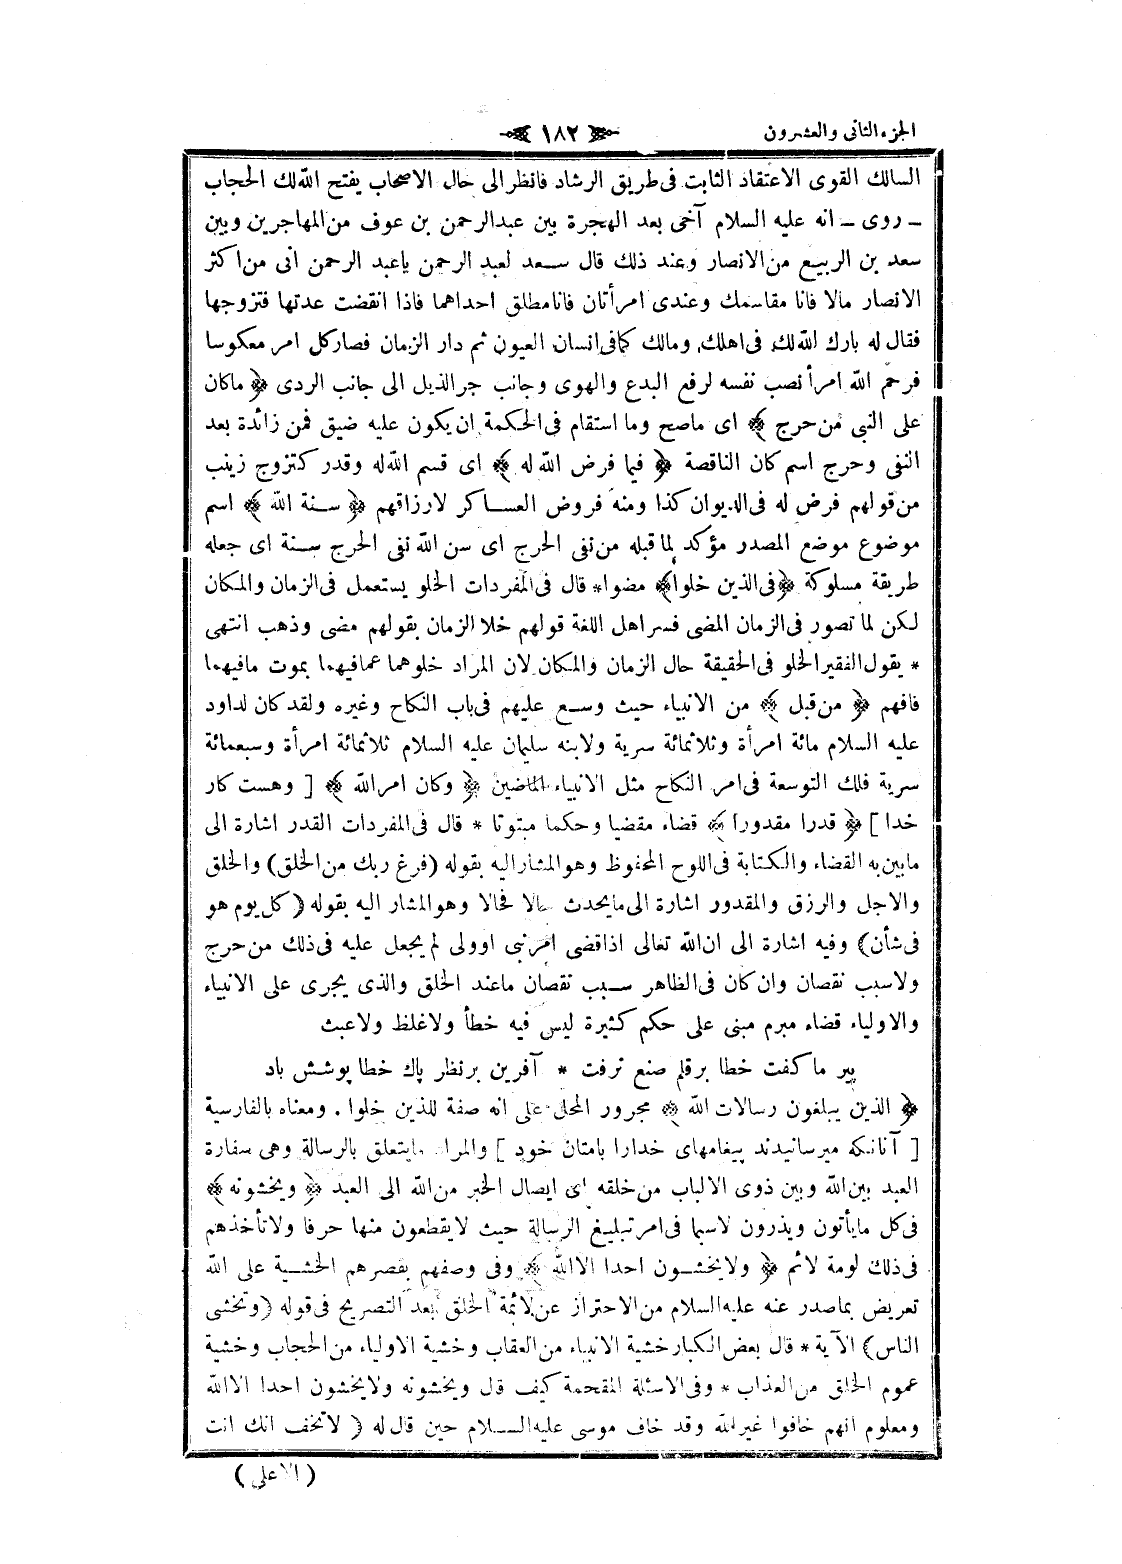 الجزء الثانى والعشرون
١٨٢
السالك القوى الاعتقاد الثابت فى طريق الرشاد فانظر الى حال الاصحاب يفتح الله لك الحجاب
ـ روى ـ انه عليه السلام آخى بعد الهجرة بين عبد الرحمن بن عوف من المهاجرين وبين
سعد بن الربيع من الانصار وعند ذلك قال سعد لعبد الرحمن ياعبد الرحمن انى من اكثر
الانصار مالا فانا مقاسمك وعندى امرأتان فانا مطلق احداهما فاذا انقضت عدتها فتزوجها
فقال له بارك الله لك فى اهلك ومالك كما فى انسان العيون ثم دار الزمان فصار كل امر معكوسا
فرحم الله امرأ نصب نفسه لرفع البدع والهوى وجانب جر الذيل الى جانب الردى ﴿ ماكان
على النبى من حرج ﴾ اى ماصح وما استقام فى الحكمة ان يكون عليه ضيق فمن زائدة بعد
النفى وحرج اسم كان الناقصة ﴿ فيما فرض الله له ﴾ اى قسم الله له وقدر كتزوج زينب
من قولهم فرض له فى الديوان كذا ومنه فروض العساكر لارزاقهم ﴿ سنة الله ﴾ اسم
موضوع موضع المصدر مؤكد لما قبله من نفى الحرج اى سن الله نفى الحرج سنة اى جعله
طريقة مسلوكة ﴿ فى الذين خلوا ﴾ مضوا * قال فى المفردات الخلو يستعمل فى الزمان والمكان
لكن لما تصور فى الزمان المضى فسر اهل اللغة قولهم خلا الزمان بقولهم مضى وذهب انتهى
* يقول الفقير الخلو فى الحقيقة حال الزمان والمكان لان المراد خلوهما عما فيهما بموت مافيهما
فافهم ﴿ من قبل ﴾ من الانبياء حيث وسع عليهم فى باب النكاح وغيره ولقد كان لداود
عليه السلام مائة امرأة وثلاثمائة سرية ولابنه سليمان عليه السلام ثلاثمائة امرأة وسبعمائة
سرية فلك التوسعة فى امر النكاح مثل الانبياء الماضين ﴿ وكان امر الله ﴾ [ وهست كار
خدا ] ﴿ قدرا مقدورا ﴾ قضاء مقضيا وحكما مبتوتا * قال فى المفردات القدر اشارة الى
مابين به القضاء والكتابة فى اللوح المحفوظ وهو المشار اليه بقوله (فرغ ربك من الخلق) والخلق
والاجل والرزق والمقدور اشارة الى مايحدث حالا فحالا وهو المشار اليه بقوله (كل يوم هو
فى شأن) وفيه اشارة الى ان الله تعالى اذا قضى امر نبى اوولى لم يجعل عليه فى ذلك من حرج
ولاسبب نقصان وان كان فى الظاهر سبب نقصان ماعند الخلق والذى يجرى على الانبياء
والاولياء قضاء مبرم مبنى على حكم كثيرة ليس فيه خطأ ولاغلط ولاعبث
پير ما كفت خطا بر قلم صنع نرفت * آفرين بر نظر پاك خطا پوشش باد
﴿ الذين يبلغون رسالات الله ﴾ مجرور المحل على انه صفة للذين خلوا . ومعناه بالفارسية
[ آنانكه ميرسانيدند پيغامهاى خدارا بامتان خود ] والمراد مايتعلق بالرسالة وهى سفارة
العبد بين الله وبين ذوى الالباب من خلقه اى ايصال الخبر من الله الى العبد ﴿ ويخشونه ﴾
فى كل مايأتون ويذرون لاسيما فى امر تبليغ الرسالة حيث لايقطعون منها حرفا ولاتأخذهم
فى ذلك لومة لائم ﴿ ولايخشون احدا الا الله ﴾ وفى وصفهم بقصرهم الخشية على الله
تعريض بماصدر عنه عليه السلام من الاحتراز عن لائمة الخلق بعد التصريح فى قوله (وتخشى
الناس) الآية * قال بعض الكبار خشية الانبياء من العقاب وخشية الاولياء من الحجاب وخشية
عموم الخلق من العذاب * وفى الاسئلة المقحمة كيف قال ويخشونه ولايخشون احدا الا الله
ومعلوم انهم خافوا غير الله وقد خاف موسى عليه السلام حين قال له ( لاتخف انك انت
( الاعلى )